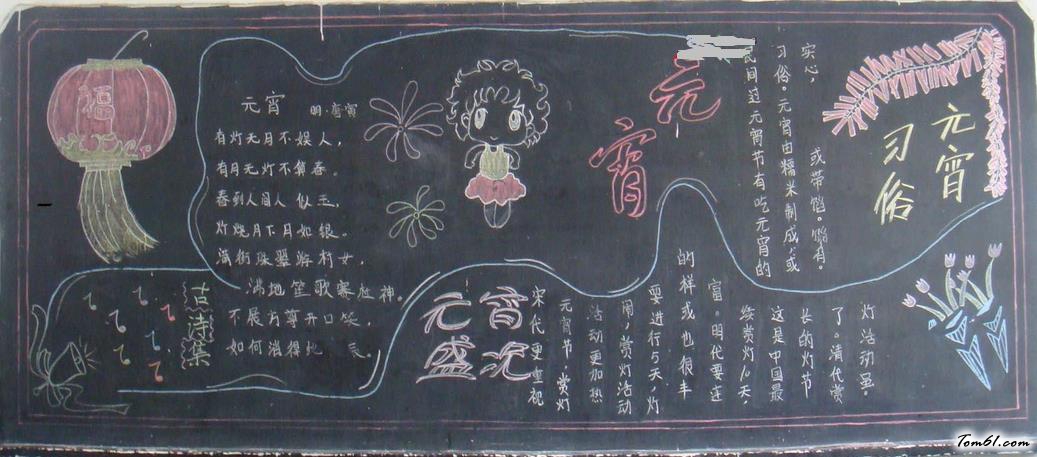 福
元宵
明·唐寅
有灯无月不娱人，
有月无灯不算春。
春到人间人似玉，
灯烧月下月如银。
满街珠翠游村女，
满地笙歌赛社神。
不展方尊开口笑，
如何消得此 辰。
古诗集
元宵
实心，或带馅。馅有
习俗。元宵由糯米制成，或
民间过元宵节有吃元宵的
元宵
习俗
元宵
盛况
宋代更重视
元宵节，赏灯
活动更加热
闹，赏灯活动
要进行5天，灯
的样式也很丰
富。明代要连
续赏灯10天，
这是中国最
长的灯节
了。清代赏
灯活动虽
Tom61.com